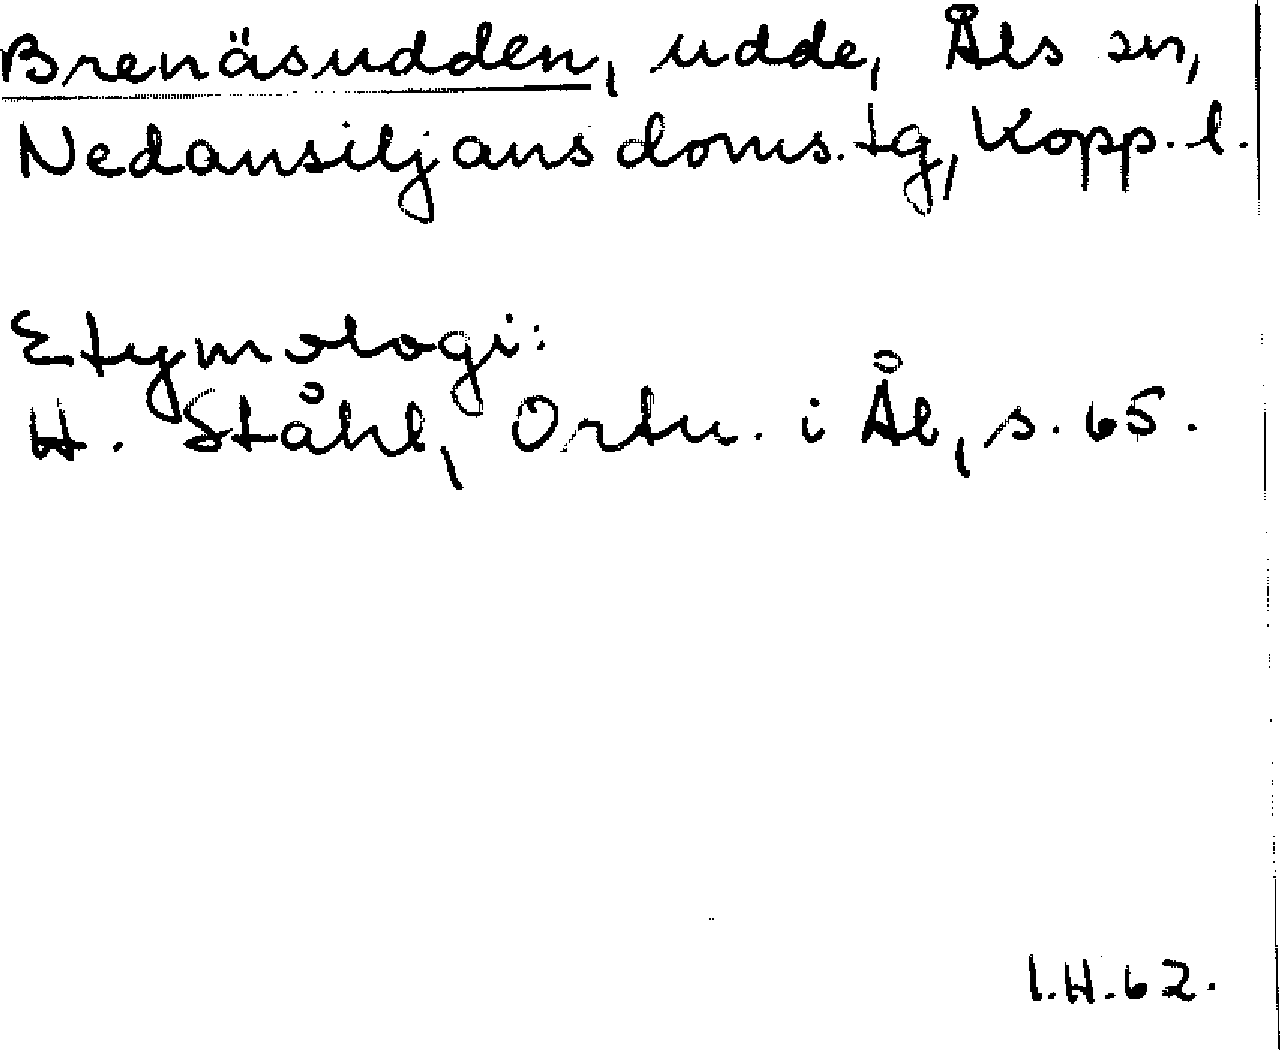 Brenäsudden, udde, Åls sn,
Nedansiljans doms.tg, Kopp. l.
Etymologi:
H. Ståhl, Ortn. i Ål, s. 65.
I.H.62.